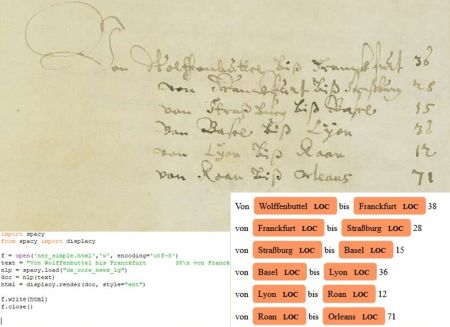 Von Wolffenbuttel biß Franckfurt 38
von Franckfurt biß Straßburg 28
von Straßburg biß Basel 15
von Basel biß Lyon 36
von Lyon biß Roan 12
von Roan biß Orleans 71
import spacy
from spacy import displacy
f = open('ner_simple.html','w', encoding='utf-8')
text = "Von Wolffenbuttel bis Franckfurt 38\n von Franck
nlp = spacy.load("de_core_news_lg")
doc = nlp(text)
html = displacy.render(doc, style="ent")
f.write(html)
f.close()
Von Wolffenbuttel LOC bis Franckfurt LOC 38
von Franckfurt LOC bis Straßburg LOC 28
von Straßburg LOC bis Basel LOC 15
von Basel LOC bis Lyon LOC 36
von Lyon LOC bis Roan LOC 12
von Roan LOC bis Orleans LOC 71